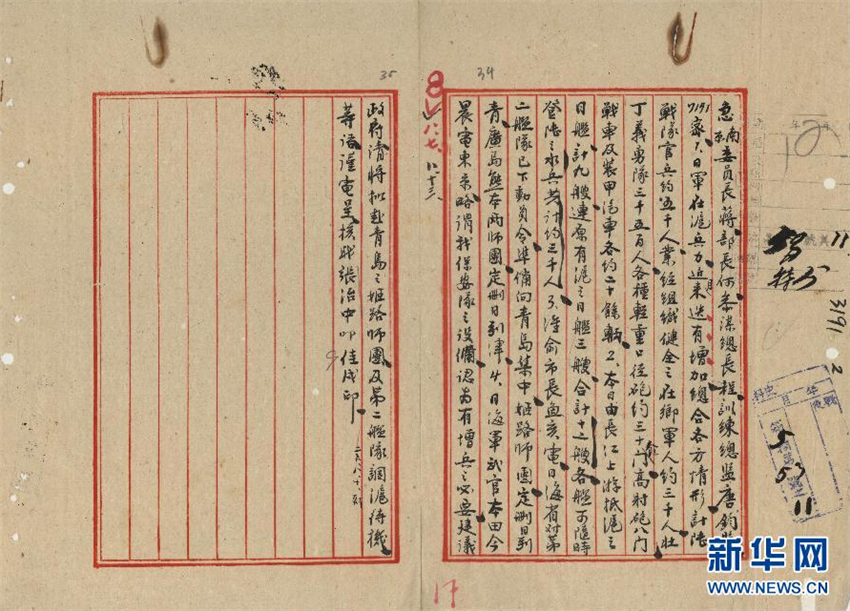 急南京委員長蔣部長何參謀總長程訓練總監唐鈞鑒
密1、日軍在滬兵力近來迭有增加總合各方情形計陸
戰隊官兵約五千人業經組織健全之在鄉軍人約三千人壯
丁義勇隊三千五百人各種輕重口徑砲約三十餘門高射砲八門
戰車及裝甲汽車各約二十餘輛2、本日由長江上游抵滬之
日艦計九艘連原有滬之日艦三艘合計十二艘各艦可隨時
登陸之水兵共計約三千人3、准俞市長魚亥電日海省對第
二艦隊已下動員令準備向青島集中姬路師團定刪日到
青廣島熊本兩師團定刪日到津4、日海軍武官本田今
晨電東京略謂我保安隊之設備認為有增兵之必要建議
政府請將擬赴青島之姬路師團及第二艦隊調滬待機
等語謹電呈核職張治中叩佳戌印
34
35
8
八、七、
3191
2
11
17
新华网
NEWS